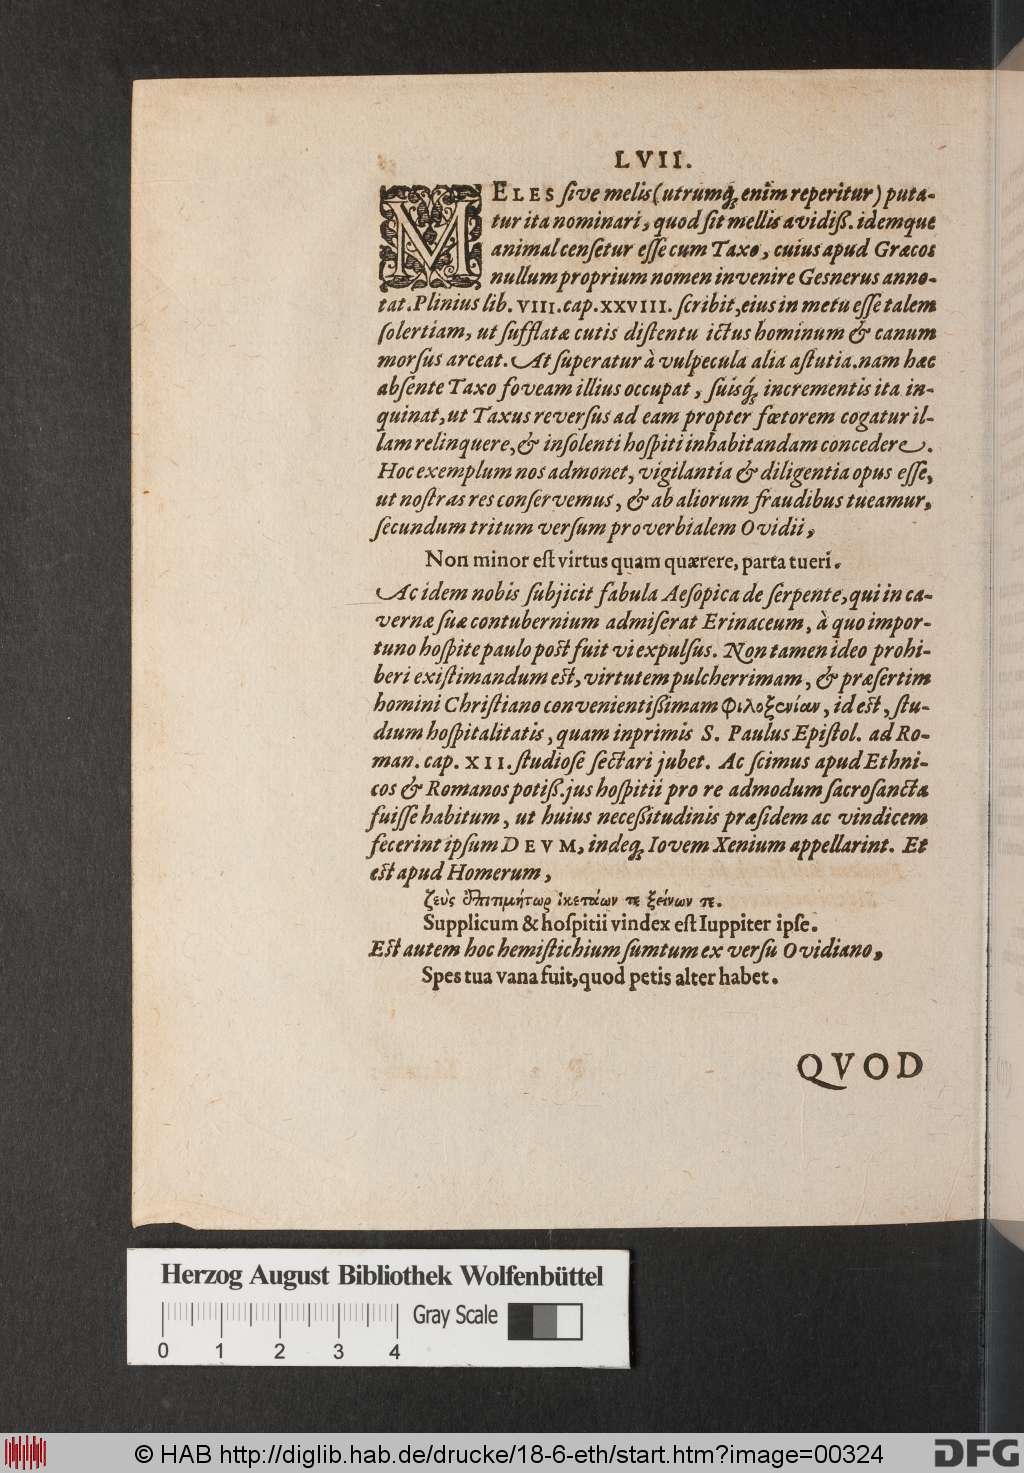 LVII.
MELES ſive melis (utrumq́; enim reperitur) puta-
tur ita nominari, quod ſit mellis avidiß. idemque
animal cenſetur eſſe cum Taxo, cuius apud Græcos
nullum proprium nomen invenire Gesnerus anno-
tat. Plinius lib. VIII. cap. XXVIII. ſcribit, eius in metu eſſe talem
ſolertiam, ut ſufflatæ cutis diſtentu ictus hominum & canum
morſus arceat. At ſuperatur à vulpecula alia aſtutia. nam hæc
abſente Taxo foveam illius occupat, ſuisq́; incrementis ita in-
quinat, ut Taxus reverſus ad eam propter fœtorem cogatur il-
lam relinquere, & inſolenti hoſpiti inhabitandam concedere.
Hoc exemplum nos admonet, vigilantia & diligentia opus eſſe,
ut noſtras res conſervemus, & ab aliorum fraudibus tueamur,
ſecundum tritum verſum proverbialem Ovidii,
Non minor eſt virtus quam quærere, parta tueri.
Ac idem nobis ſubjicit fabula Aeſopica de ſerpente, qui in ca-
vernæ ſuæ contubernium admiſerat Erinaceum, à quo impor-
tuno hoſpite paulo poſt fuit vi expulſus. Non tamen ideo prohi-
beri exiſtimandum eſt, virtutem pulcherrimam, & præſertim
homini Chriſtiano convenientißimam φιλοξενίαν, id eſt, ſtu-
dium hoſpitalitatis, quam inprimis S. Paulus Epiſtol. ad Ro-
man. cap. XII. ſtudioſe ſectari jubet. Ac ſcimus apud Ethni-
cos & Romanos potiß. jus hoſpitii pro re admodum ſacroſancta
fuiſſe habitum, ut huius neceßitudinis præſidem ac vindicem
fecerint ipſum DEVM, indeq́; Iovem Xenium appellarint. Et
eſt apud Homerum,
ζεὺς ἐπιτιμήτωρ ἱκετάων τε ξείνων τε.
Supplicum & hoſpitii vindex eſt Iuppiter ipſe.
Eſt autem hoc hemiſtichium ſumtum ex verſu Ovidiano,
Spes tua vana fuit, quod petis alter habet.
QVOD
Herzog August Bibliothek Wolfenbüttel
Gray Scale
0 1 2 3 4
© HAB http://diglib.hab.de/drucke/18-6-eth/start.htm?image=00324
DFG